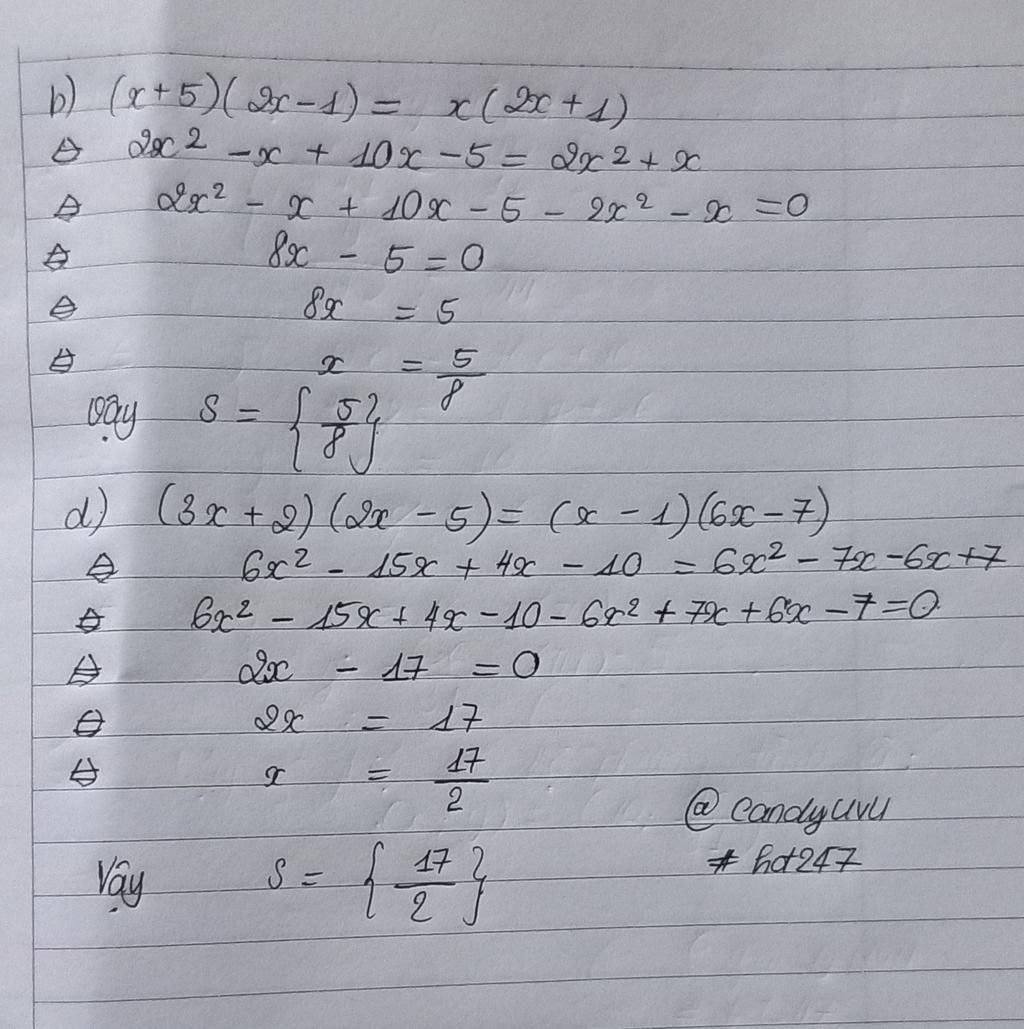 b) (x+5)(2x-1) = x(2x+1)
⇔ 2x² - x + 10x - 5 = 2x² + x
⇔ 2x² - x + 10x - 5 - 2x² - x = 0
⇔ 8x - 5 = 0
⇔ 8x = 5
⇔ x = 5/8
Vậy S = {5/8}
d) (3x+2)(2x-5) = (x-1)(6x-7)
⇔ 6x² - 15x + 4x - 10 = 6x² - 7x - 6x + 7
⇔ 6x² - 15x + 4x - 10 - 6x² + 7x + 6x - 7 = 0
⇔ 2x - 17 = 0
⇔ 2x = 17
⇔ x = 17/2
@candyuvu
Vậy S = {17/2}
#hd247